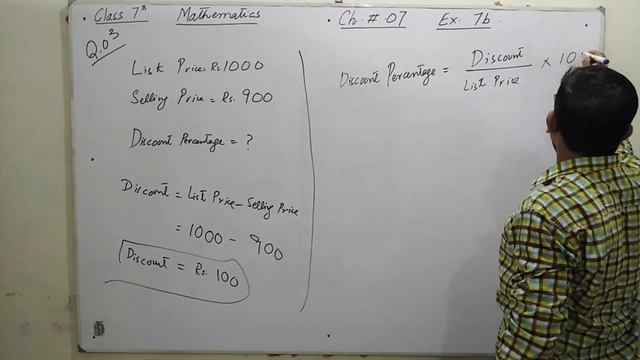 Class 7th Mathematics Ch. # 07 Ex. 7b
Q.03
List Price = Rs. 1000
Selling Price = Rs. 900
Discount Percentage = ?
Discount = List Price - Selling Price
= 1000 - 900
Discount = Rs. 100
Discount Percentage = Discount / List Price × 10